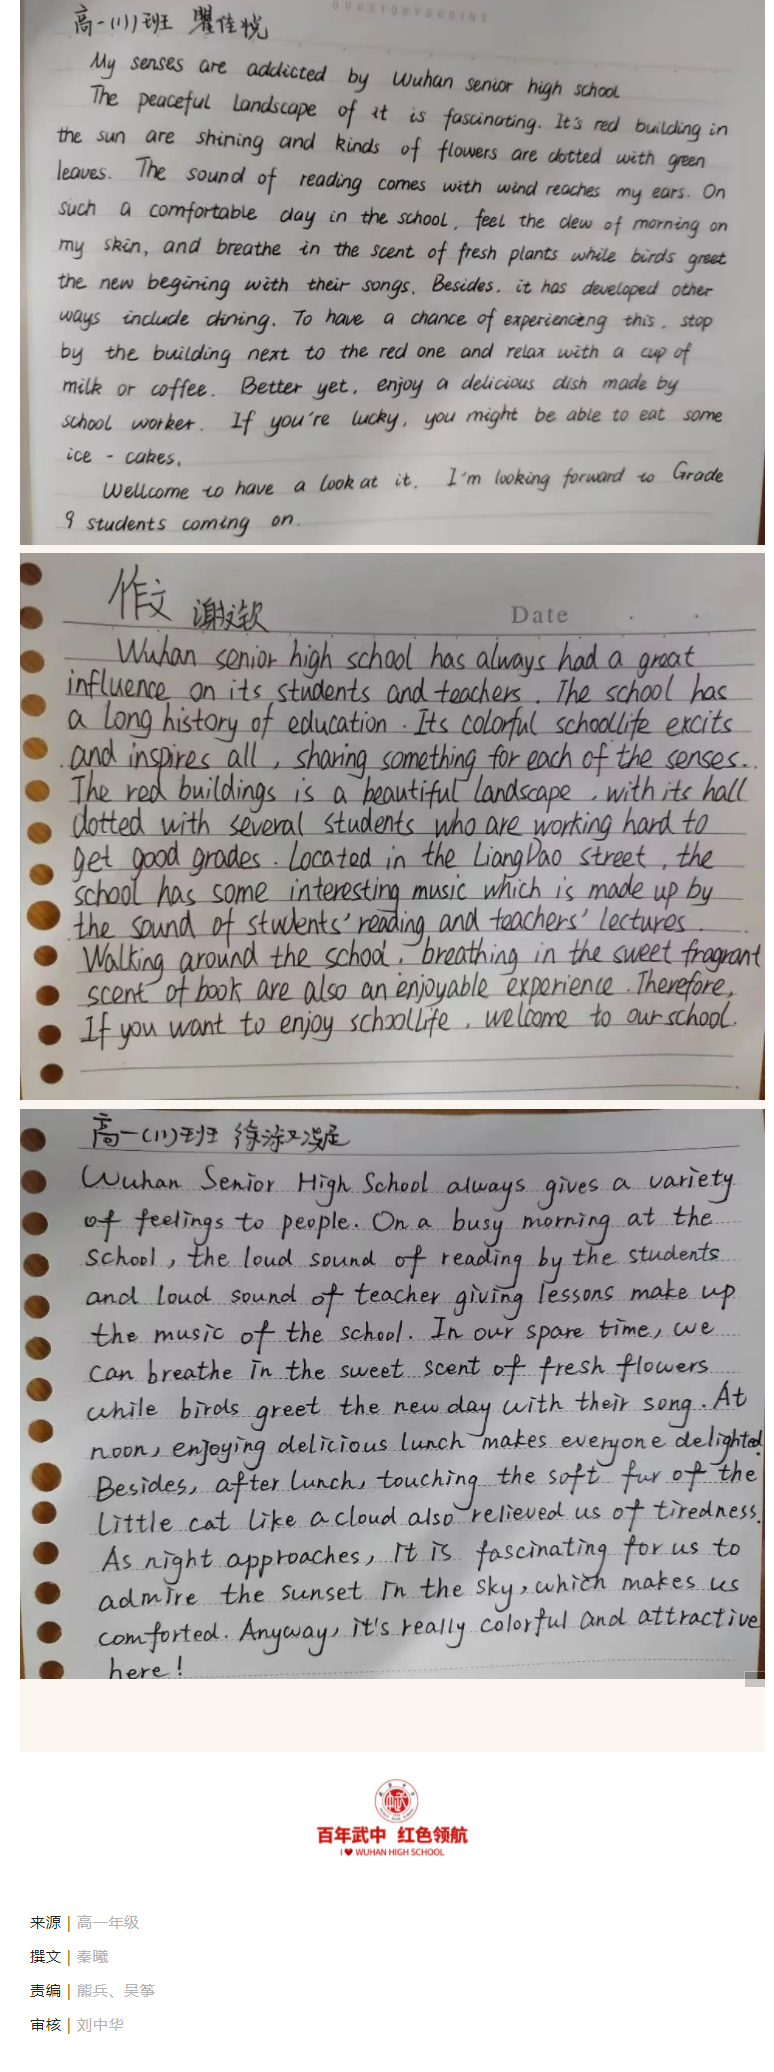 OURSTORYBEGINS
高一(11)班 瞿佳悦
My senses are addicted by Wuhan senior high school
The peaceful landscape of it is fascinating. It's red building in
the sun are shining and kinds of flowers are dotted with green
leaves. The sound of reading comes with wind reaches my ears. On
such a comfortable day in the school, feel the dew of morning on
my skin, and breathe in the scent of fresh plants while birds greet
the new begining with their songs. Besides, it has developed other
ways include dining. To have a chance of experienceng this, stop
by the building next to the red one and relax with a cup of
milk or coffee. Better yet, enjoy a delicious dish made by
school worker. If you're lucky, you might be able to eat some
ice - cakes.
Wellcome to have a look at it. I'm looking forward to Grade
9 students coming on.
作文 谢文钦
Date
Wuhan senior high school has always had a great
influence on its students and teachers. The school has
a long history of education. Its colorful schoollife excits
and inspires all, sharing something for each of the senses.
The red buildings is a beautiful landscape, with its hall
dotted with several students who are working hard to
get good grades. Located in the LiangDao street, the
school has some interesting music which is made up by
the sound of students' reading and teachers' lectures.
Walking around the school, breathing in the sweet fragrant
scent of book are also an enjoyable experience. Therefore,
If you want to enjoy schoollife, welcome to our school.
高一(11)班 徐涂
Wuhan Senior High School always gives a variety
of feelings to people. On a busy morning at the
school, the loud sound of reading by the students
and loud sound of teacher giving lessons make up
the music of the school. In our spare time, we
can breathe in the sweet scent of fresh flowers
while birds greet the new day with their song. At
noon, enjoying delicious lunch makes everyone delighted.
Besides, after lunch, touching the soft fur of the
little cat like a cloud also relieved us of tiredness.
As night approaches, it is fascinating for us to
admire the sunset in the sky, which makes us
comforted. Anyway, it's really colorful and attractive
here!
百年武中 红色领航
I WUHAN HIGH SCHOOL
来源 | 高一年级
撰文 | 秦曦
责编 | 熊兵、吴筝
审核 | 刘中华